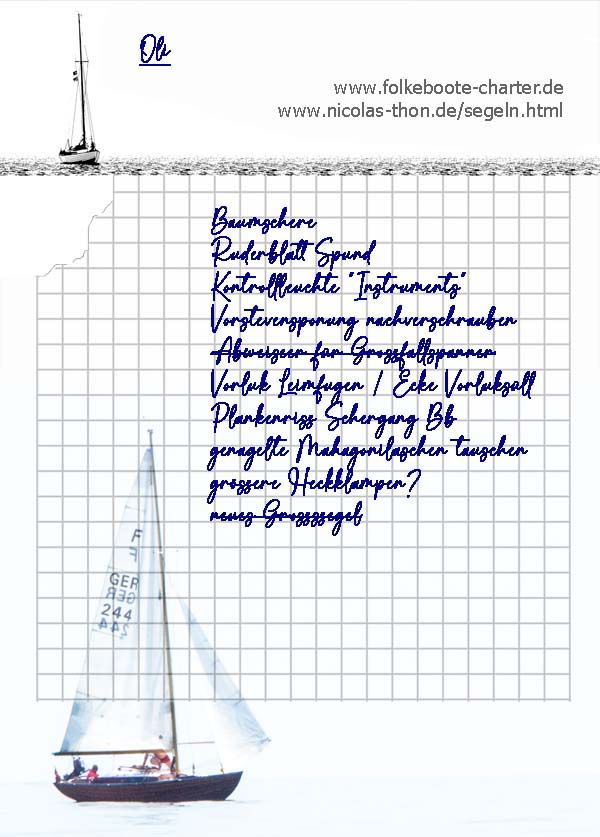 Oli
www.folkeboote-charter.de
www.nicolas-thon.de/segeln.html
Baumschere
Ruderblatt Spund
Kontrollleuchte "Instruments"
Vorstevensponung nachverschrauben
Abweiser für Grossfallspanner
Vorluk Leimfugen / Ecke Vorluksüll
Plankenriss Schergang Bb
genagelte Mahagonilaschen tauschen
grössere Heckklampen?
neues Grosssegel
F
F
GER
GER
244
244